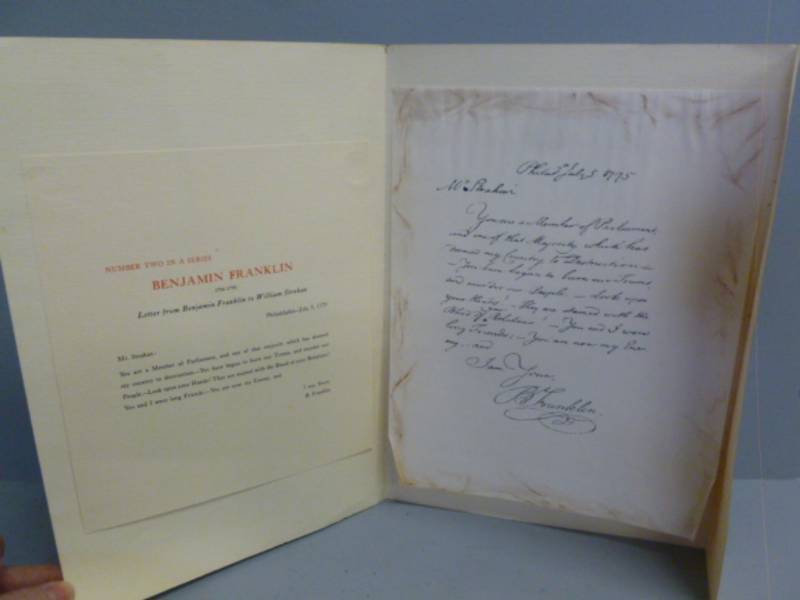 NUMBER TWO IN A SERIES
BENJAMIN FRANKLIN
Letter from Benjamin Franklin to William Strahan
Philadelphia—July 5, 1775
Mr. Strahan:
You are a Member of Parliament, and one of that majority which has doomed
my country to destruction.—You have begun to burn our Towns and murder our
People.—Look upon your Hands! They are stained with the Blood of your Relations!
You and I were long Friends:—You are now my Enemy, and
I am Yours
B. Franklin
Philada July 5 1775
Mr Strahan
You are a Member of Parliament,
and one of that Majority which has
doomed my Country to Destruction.—
—You have begun to burn our Towns,
and murder our People.—Look upon
your Hands!—They are stained with the
Blood of your Relations!—You and I were
long Friends:—You are now my Ene-
my,—and
I am Yours,
B Franklin